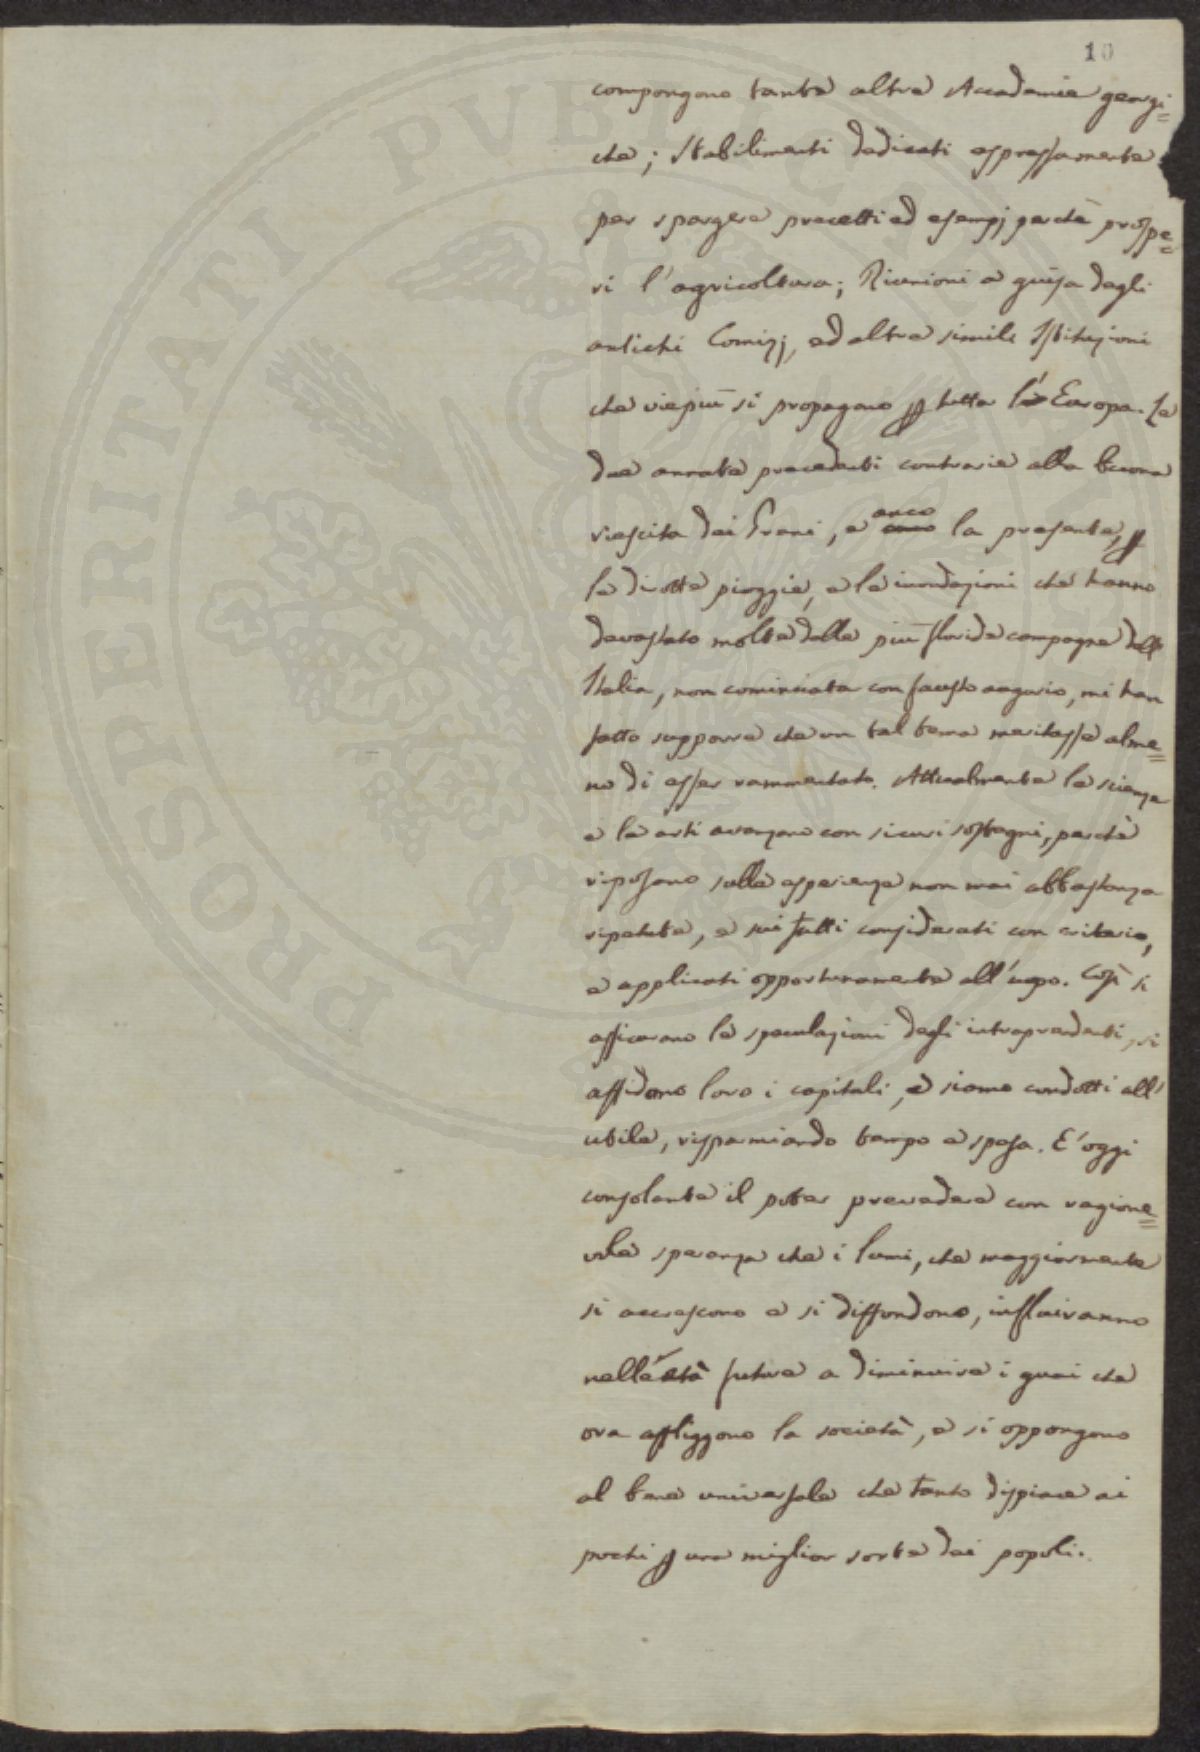 10
compongono tante altre Accademie georgi=
che; Stabilimenti dedicati espressamente
per spargere precetti ed esempj perchè prospe=
ri l'agricoltura; Riunioni a guisa degli
antichi Comizj, ed altre simili Istituzioni
che viepiù si propagano p tutta l'Europa. Le
due annate precedenti contrarie alla buona
riescita dei Grani, e anco la presente, p
le dirotte pioggie, e le inondazioni che hanno
devastato molte delle più floride campagne dell'
Italia, non cominciata con fausto augurio, mi han
fatto supporre che un tal tema meritasse alme=
no di esser rammentato. Attualmente le scienze
e le arti avanzano con sicuri sostegni, perchè
riposano sulle esperienze non mai abbastanza
ripetute, e sui fatti considerati con criterio,
e applicati opportunamente all'uopo. Così si
assicurano le speculazioni degli intraprendenti, si
affidano loro i capitali, e siamo condotti all'
utile, risparmiando tempo e spesa. E' oggi
consolante il poter prevedere con ragione=
vole speranza che i lumi, che maggiormente
si accrescono e si diffondono, influiranno
nell'età futura a diminuire i guai che
ora affliggono la società, e si oppongono
al bene universale che tanto dispiace ai
pochi p una miglior sorte dei popoli.
PROSPERITATI PVBLICAE